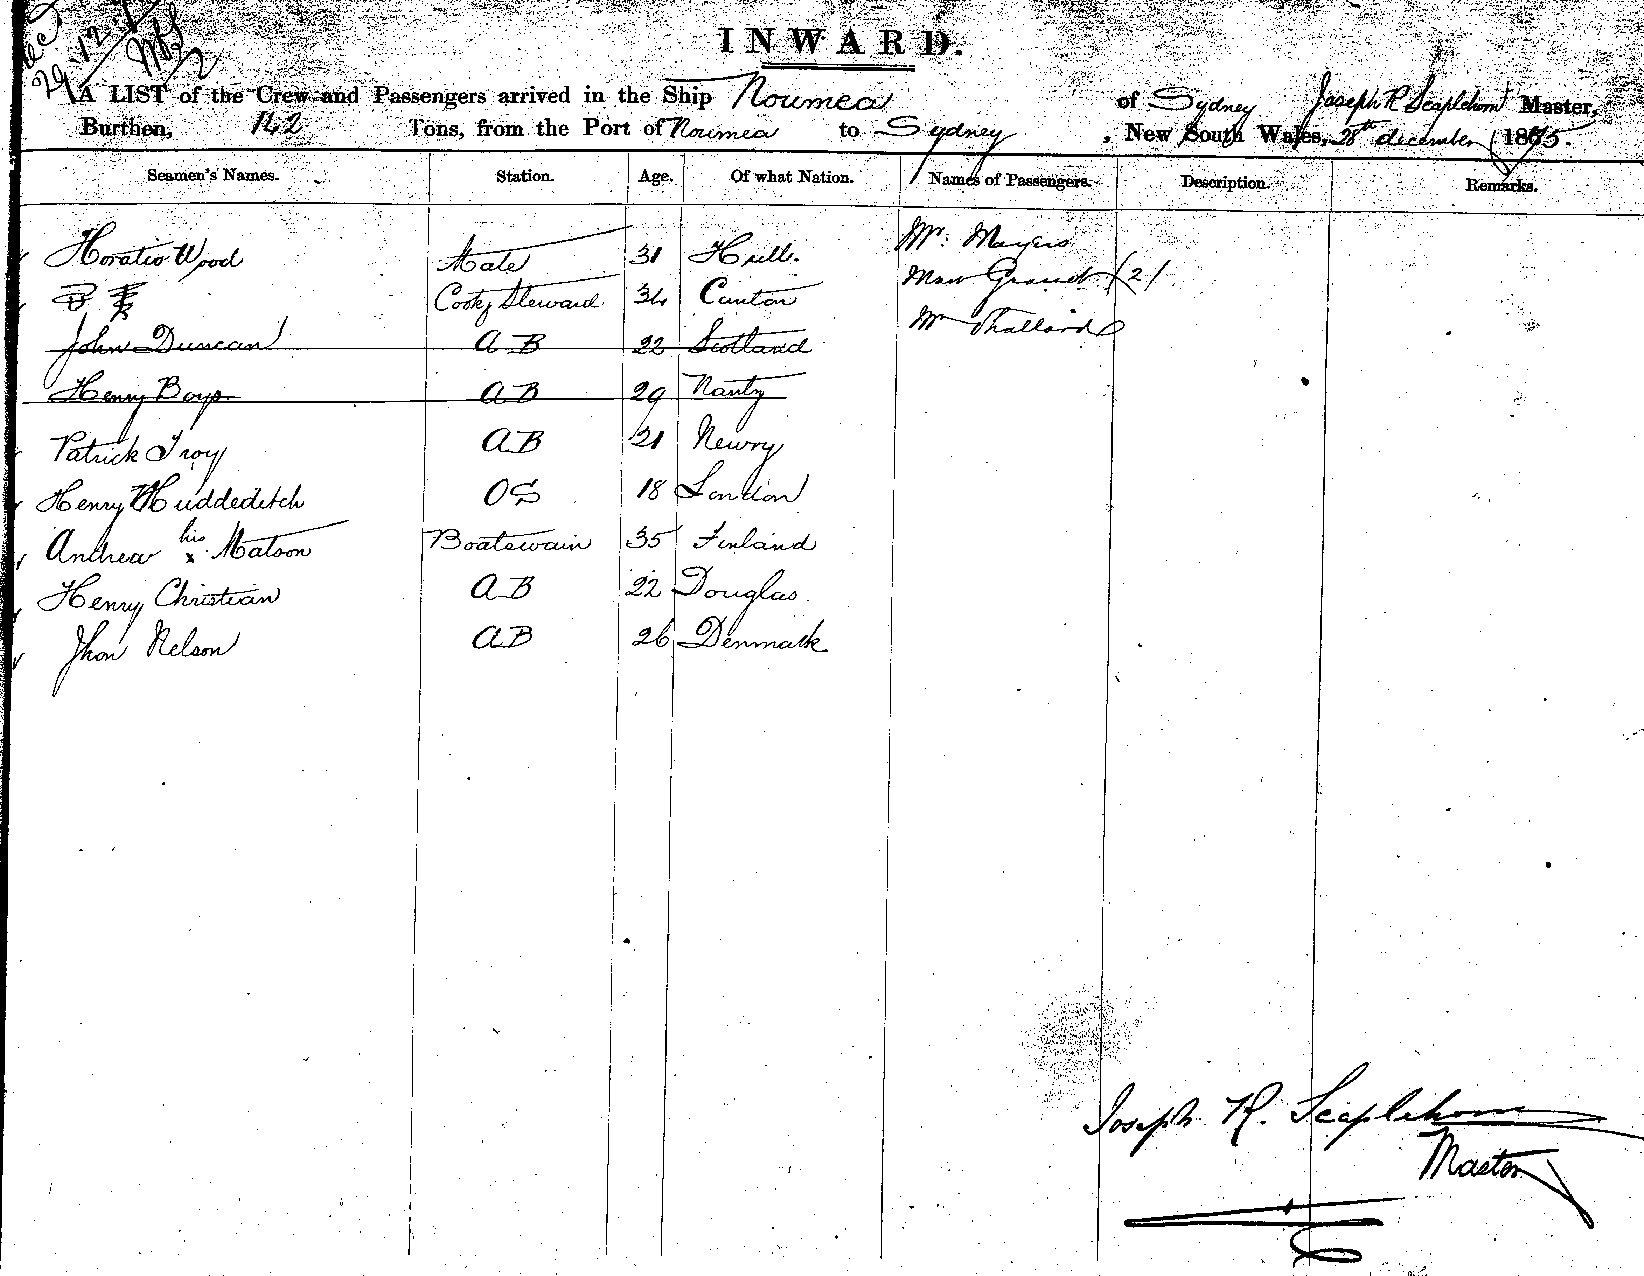 Dec
29.12.7
INWARD.
A LIST of the Crew and Passengers arrived in the Ship Noumea of Sydney Joseph R Scaplehorn Master,
Burthen, 142 Tons, from the Port of Noumea to Sydney, New South Wales, 28th december 1875.
Seamen's Names. Station. Age. Of what Nation. Names of Passengers. Description. Remarks.
Horatio Wood Mate 31 Hull. Mr. Mayers
Cook & Steward 34 Canton Mon Graud (2)
John Duncan AB 22 Scotland Mr
Henry Boys AB 29 Nantz
Patrick Troy AB 21 Newry
Henry Huddeditch OS 18 London
Andrew his x Matson Boatswain 35 Finland
Henry Christian AB 22 Douglas
Jhon Nelson AB 26 Denmark
Joseph R. Scaplehorn
Master